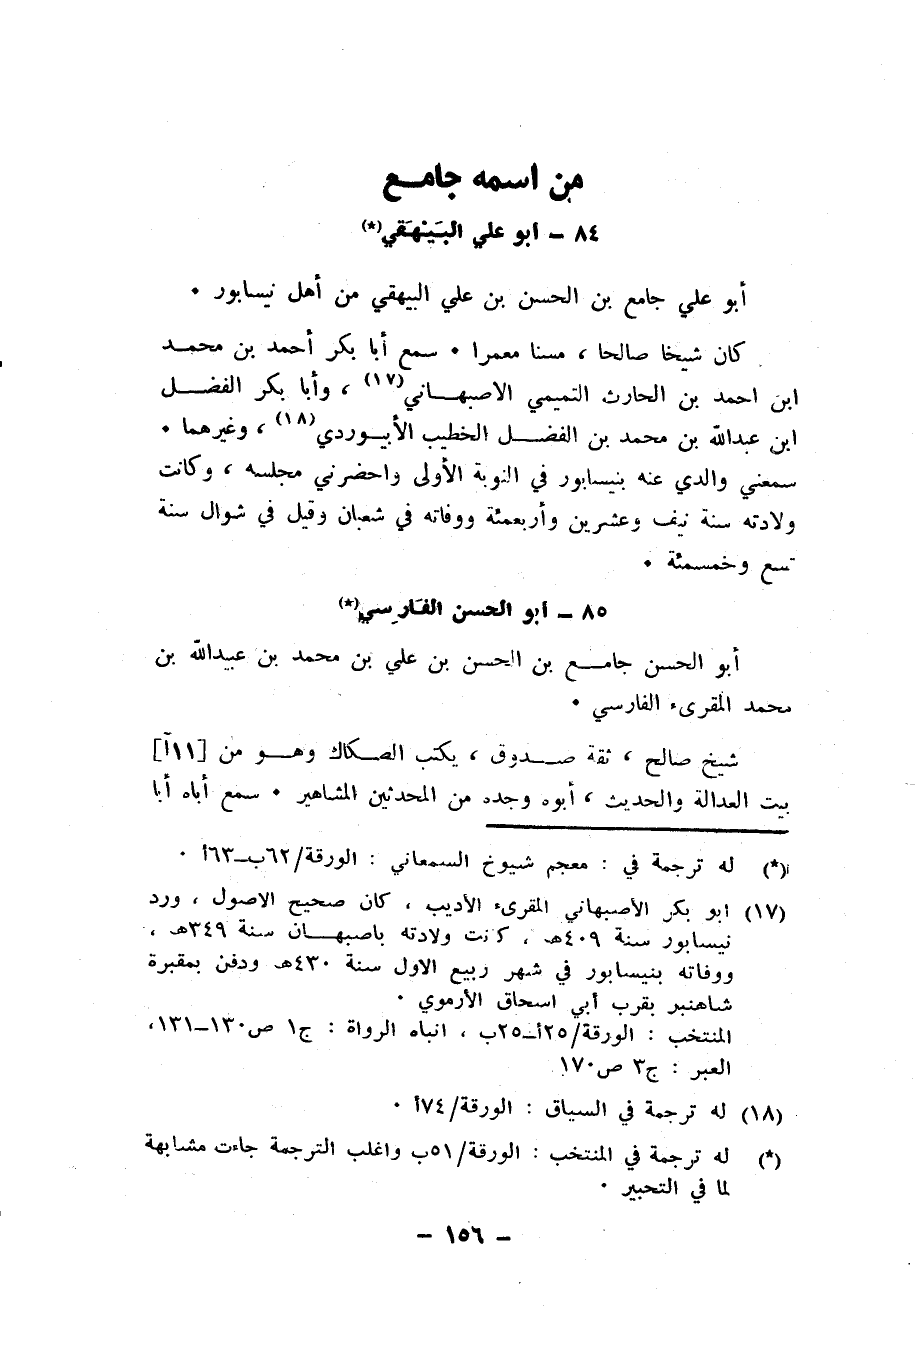 من اسمه جامـــع
٨٤ ــ ابو علي البَيْهَقي(*)
أبو علي جامع بن الحسن بن علي البيهقي من أهل نيسابور ٠
كان شيخا صالحا ، مسنا معمرا ٠ سمع أبا بكر أحمد بن محمـــد
ابن احمد بن الحارث التميمي الاصبهـــاني(١٧) ، وأبا بكر الفضـــل
ابن عبدالله بن محمد بن الفضـــل الخطيب الأبيــوردي(١٨) ، وغيرهما ٠
سمعني والدي عنه بنيسابور في النوبة الأولى واحضرني مجلسه ، وكانت
ولادته سنة نيف وعشرين وأربعمئة ووفاته في شعبان وقيل في شوال سنة
تسع وخمسمئة ٠
٨٥ ــ ابو الحسن الفَارِسي(*)
أبو الحسن جامـــع بن الحسن بن علي بن محمد بن عبيدالله بن
محمد المقرىء الفارسي ٠
شيخ صالح ، ثقة صـــدوق ، يكتب الصـكاك وهـــو من [١١آ]
بيت العدالة والحديث ، أبوه وجده من المحدثين المشاهير ٠ سمع أباه أبا
(*) له ترجمة في : معجم شيوخ السمعاني : الورقة/٦٢ب‍ـ٦٣أ ٠
(١٧) ابو بكر الأصبهاني المقرىء الأديب ، كان صحيح الاصول ، ورد
نيسابور سنة ٤٠٩هـ ، كانت ولادته باصبهـــان سنة ٣٤٩هـ ،
ووفاته بنيسابور في شهر ربيع الاول سنة ٤٣٠هـ ودفن بمقبرة
شاهنبر بقرب أبي اسحاق الأرموي ٠
المنتخب : الورقة/٢٥أ‍ـ٢٥ب ، انباه الرواة : ج١ ص١٣٠‍ـ١٣١،
العبر : ج٣ ص١٧٠
(١٨) له ترجمة في السياق : الورقة/٧٤أ ٠
(*) له ترجمة في المنتخب : الورقة/٥١ب واغلب الترجمة جاءت مشابهة
لما في التحبير ٠
ــ ١٥٦ ــ